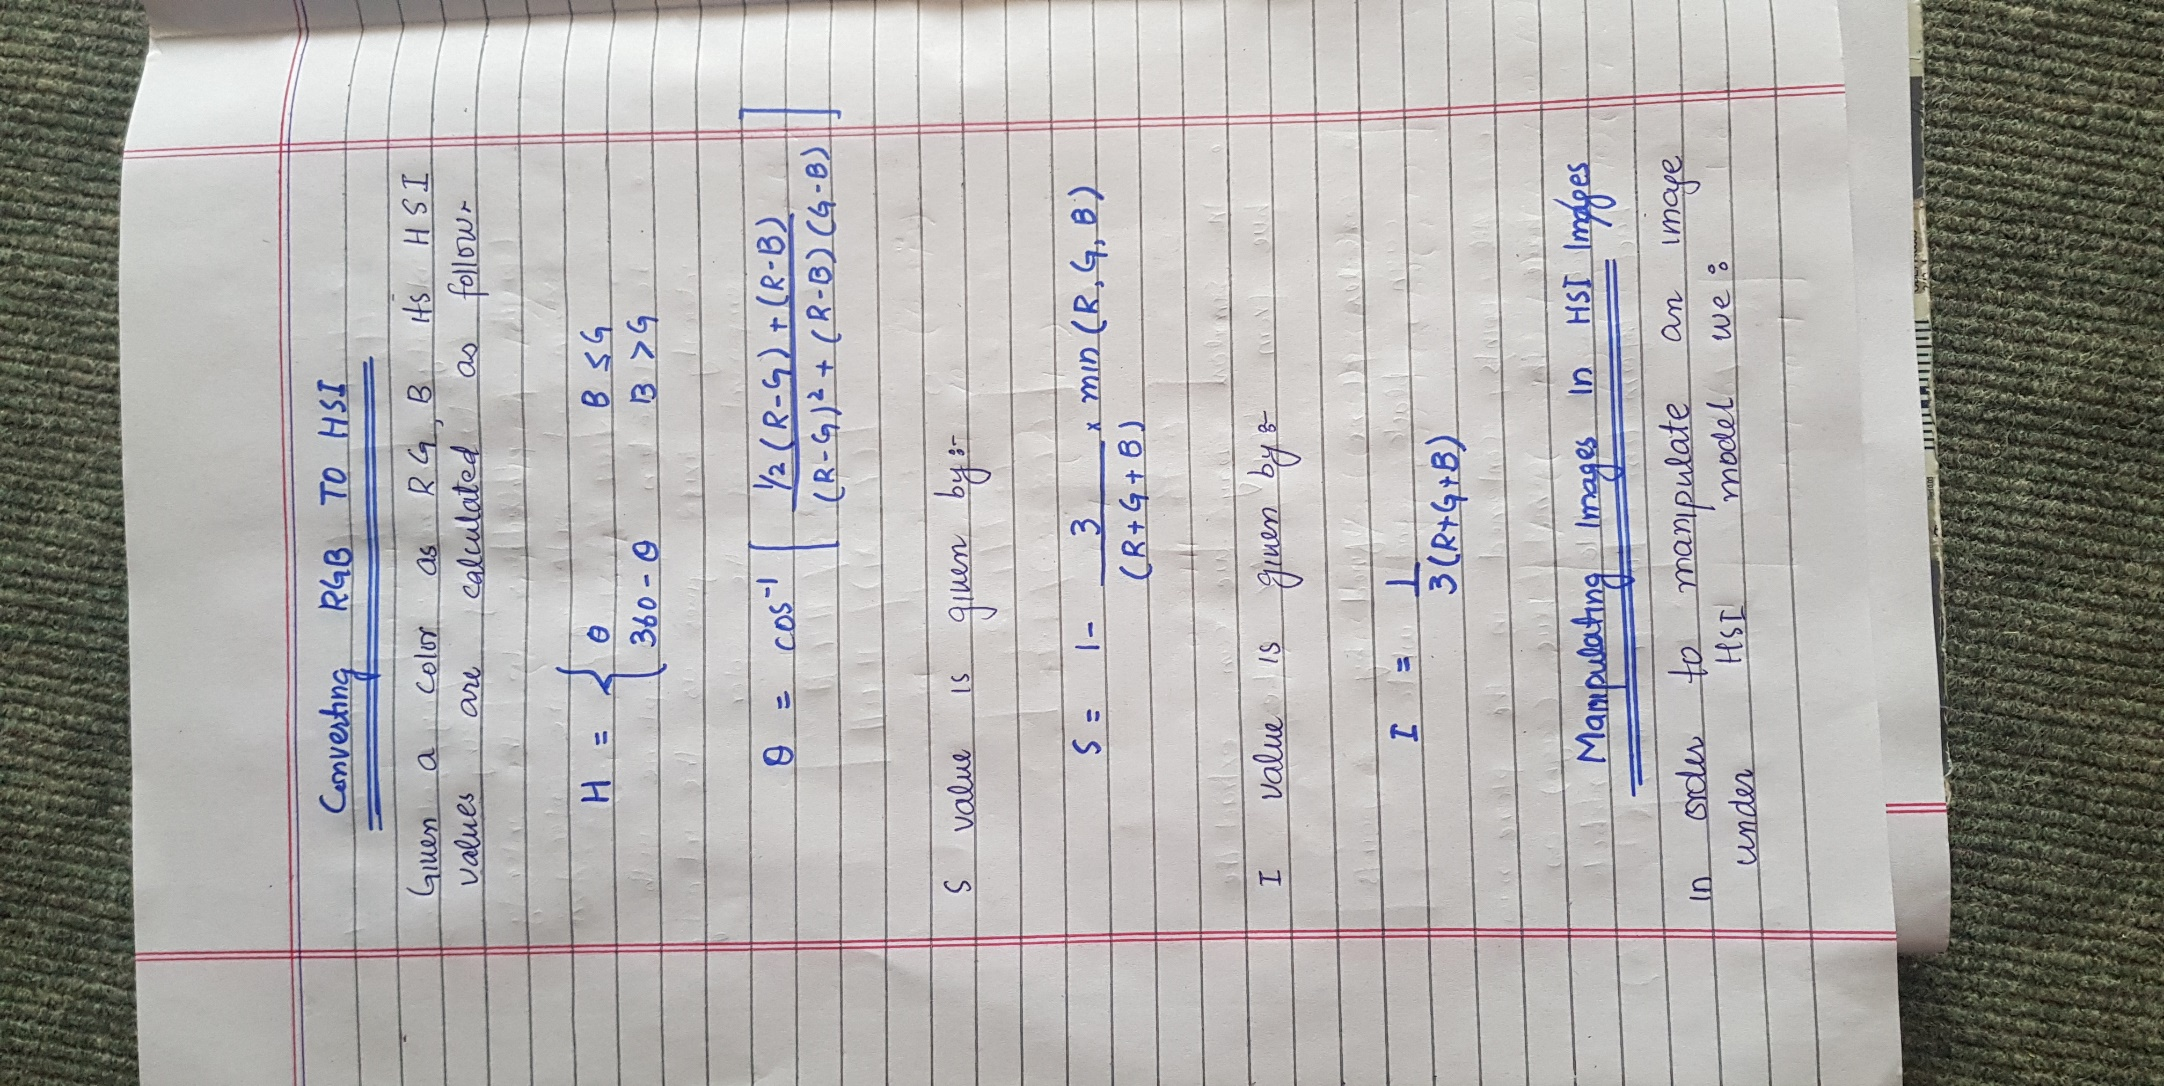 Converting RGB TO HSI
Given a color as R G, B its HSI
values are calculated as follow:-
H = { θ B ≤ G
360 - θ B > G
θ = cos⁻¹ [ 1/2 (R-G) + (R-B) / (R-G)² + (R-B) (G-B) ]
S value is given by:-
S = 1 - 3 / (R+G+B) × min (R, G, B)
I value is given by:-
I = 1 / 3(R+G+B)
Manipulating Images In HSI Images
In order to manipulate an image
under HSI model we: